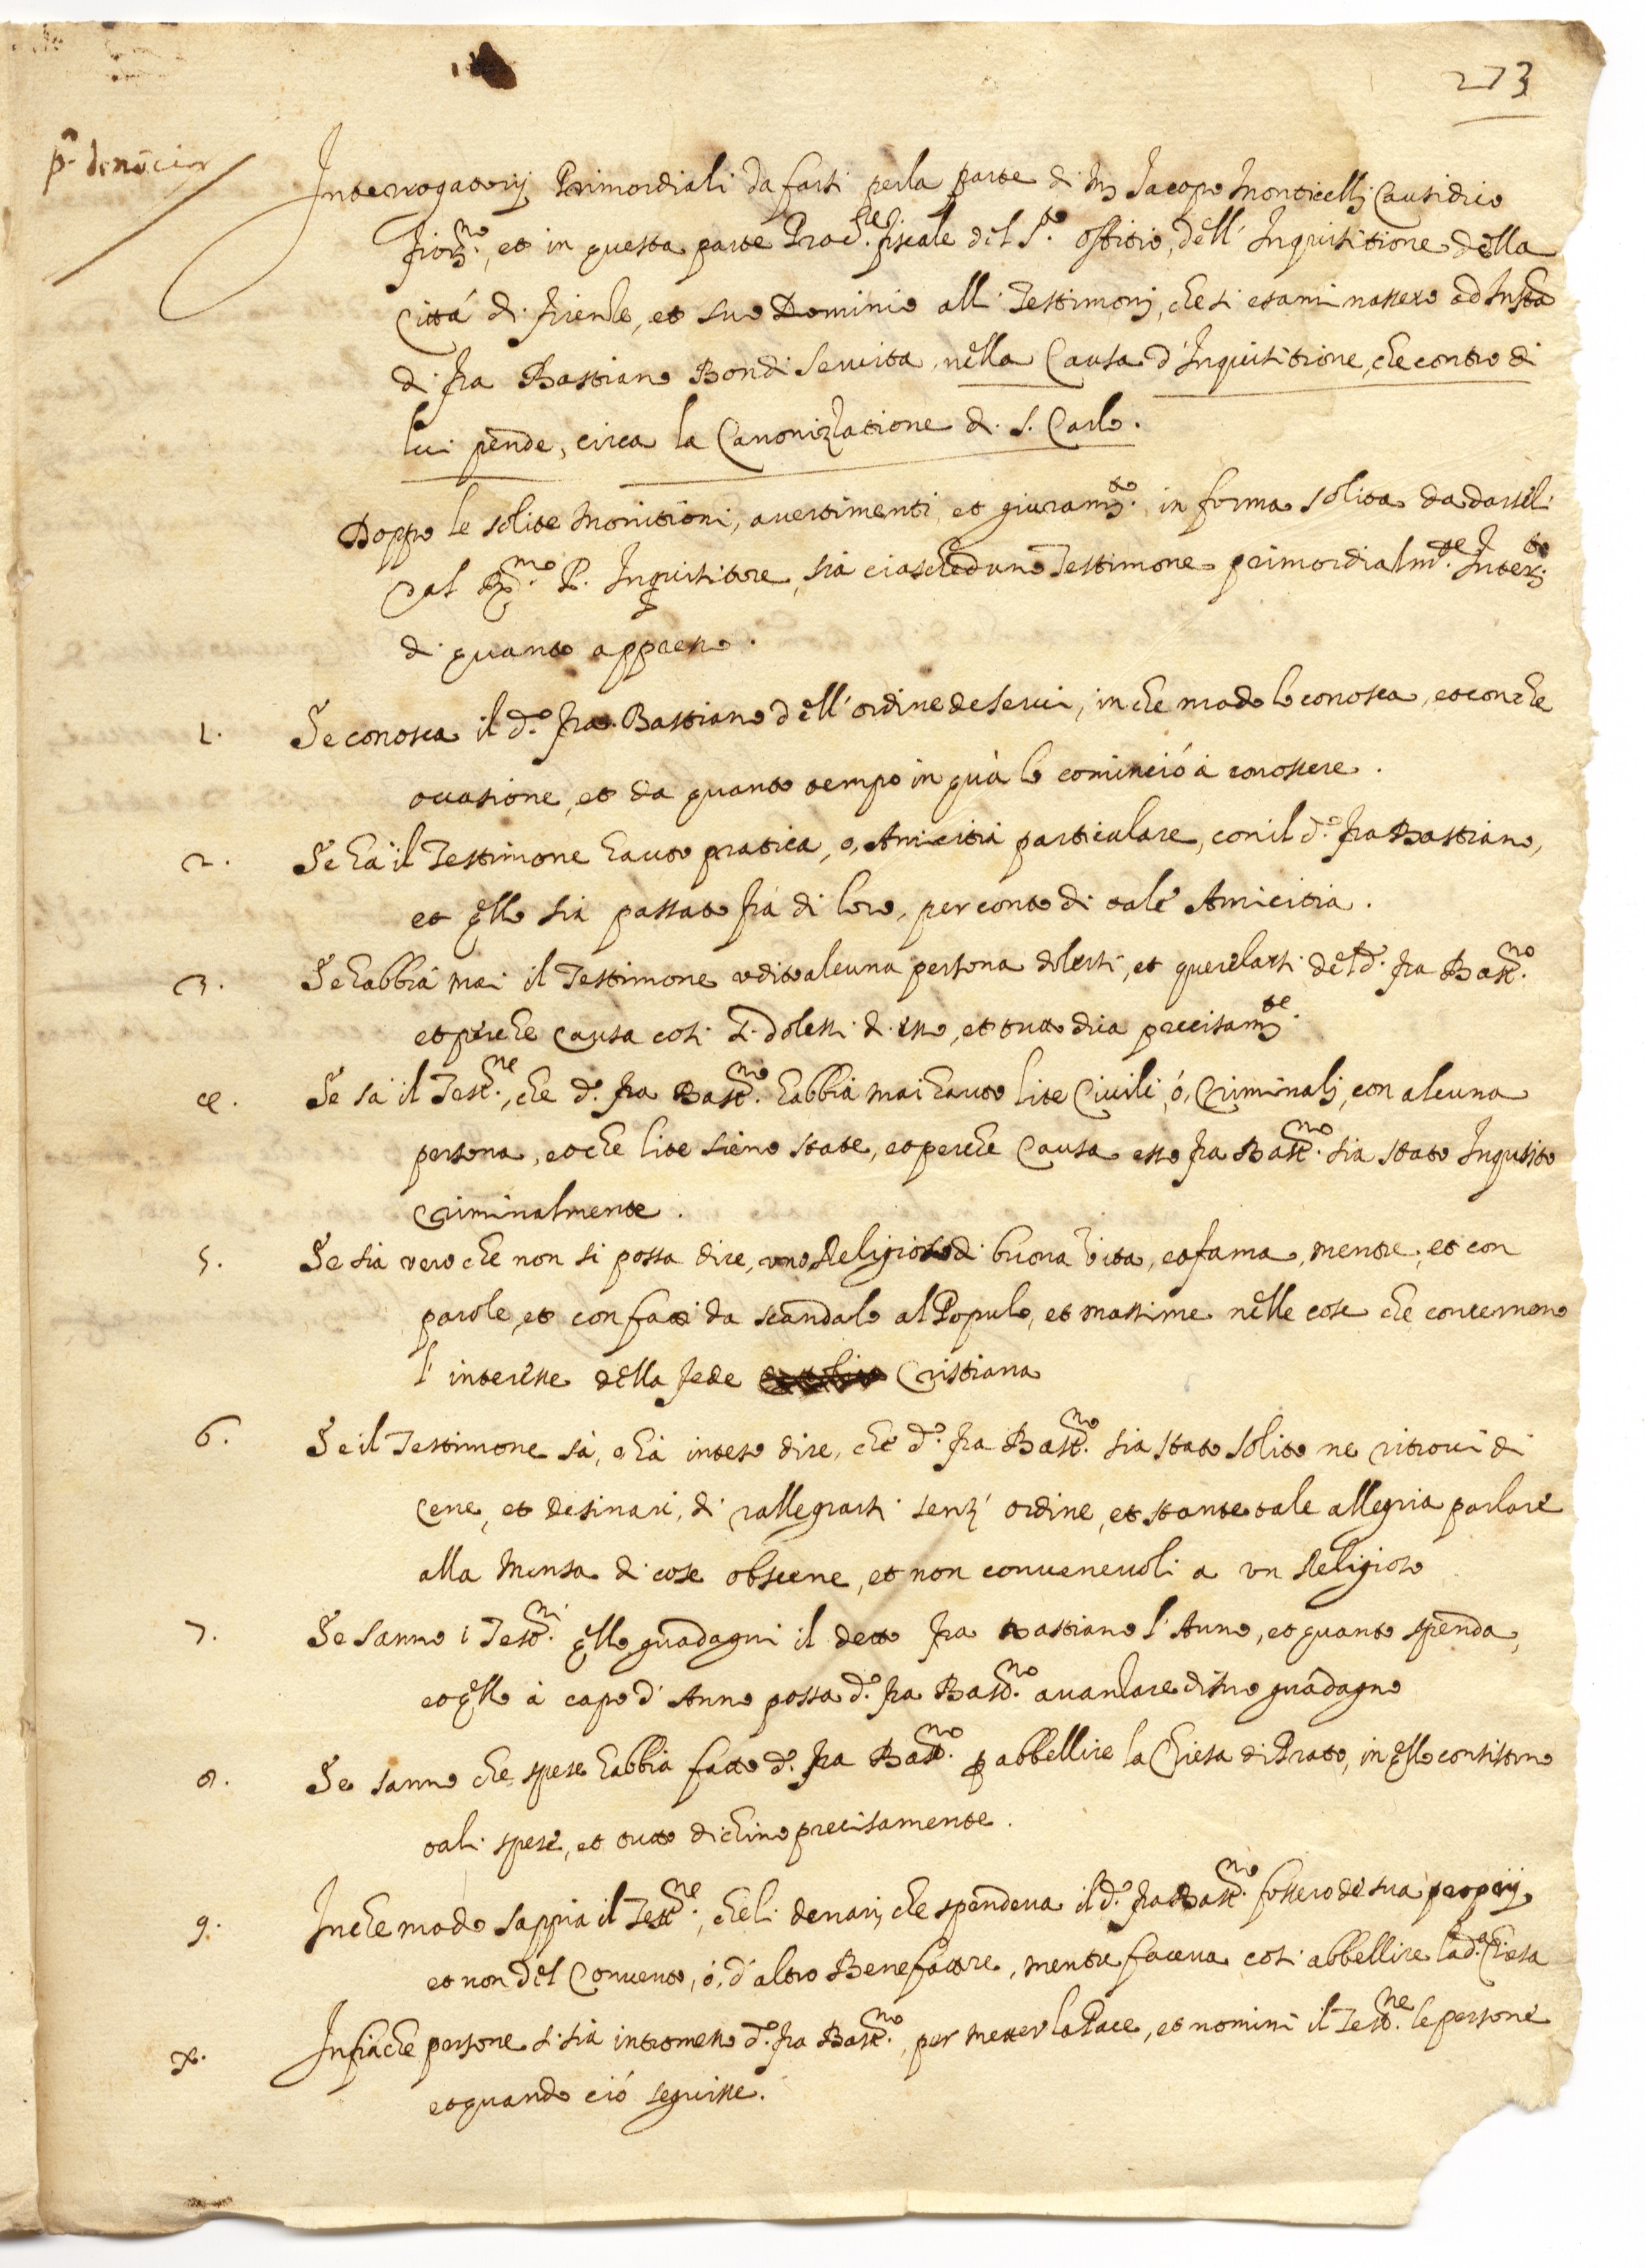 273
pª denūcia
Interrogatorij Primordiali da farsi per la parte di M Jacopo Monticellj Causidico
fior.no, et in questa parte Proc.re fiscale del S.to Offitio, dell' Inquisitione della
Città di firenze, et suo Dominio alli Testimonj, che si esaminassero ad Insta
di fra Bastiano Bondi Servita nella Causa d'Inquisitione, che contro di
lui pende, circa la Canonizzatione di S. Carlo.
Doppo le solite Monitioni, avertimenti, et giuram.to in forma solita da darseli
dal R.mo P. Inquisitore, sia ciascheduno Testimone primordialm.te Inter.to
di quanto appresso.
1. Se conosca il d.o fra Bastiano dell'ordine de Servi, in che modo lo conosca, et con che
occasione, et da quanto tempo in quà lo cominciò à conoscere.
2. Se hà il Testimone hauto pratica, o, Amicitia particulare, con il d.o fra Bastiano,
et qllo sia passato frà di loro, per conto di tale Amicitia.
3. Se habbia mai il Testimone udito alcuna persona dolersi, et querelarsi del d.o fra Bast.no
et perche causa così si dolessi di esso, et tutto dica precisam.te
4. Se sà il Test.ne, che d.o fra Bast.no habbia mai hauto lite Civili, ò, Criminalj, con alcuna
persona, et che lite sieno state, et perche Causa esso fra Bast.no sia stato Inquisito
Criminalmente.
5. Se sia vero che non si possa dire, uno Religioso di buona vita, et fama, mentre, et con
parole, et con fatti da scandalo al Populo, et massime nelle cose che concernono
l'interesse della fede Cristiana
6. Se il Testimone sà, o hà inteso dire, che d.o fra Bast.no sia stato solito ne ritrovi di
Cene, et desinari, di rallegrarsi senz' ordine, et stante tale allegria parlare
alla Mensa di cose obscene, et non convenevoli a un Religioso
7. Se sanno i Test.ni qllo guadagni il detto fra Bastiano l'Anno, et quanto spenda,
et qllo à capo d'Anno possa d.o fra Bast.no avanzare di suo guadagno
8. Se sanno che spese habbia fatto d.o fra Bast.no p abbellire la Chiesa di Prato, in qllo consistino
tali spese, et tutto dichino precisamente.
9. In che modo sappia il Test.ne, che li denari, che spendeva il d.o fra Bast.no fossero de sua proprij
et non del Convento, ò, d'altro Benefattore, mentre faceva così abbellire la d.a Chiesa
X. Infra che persone si sia intromesso d.o fra Bast.no, per metter la Pace, et nomini il Test.ne le persone
et quando ciò seguisse.